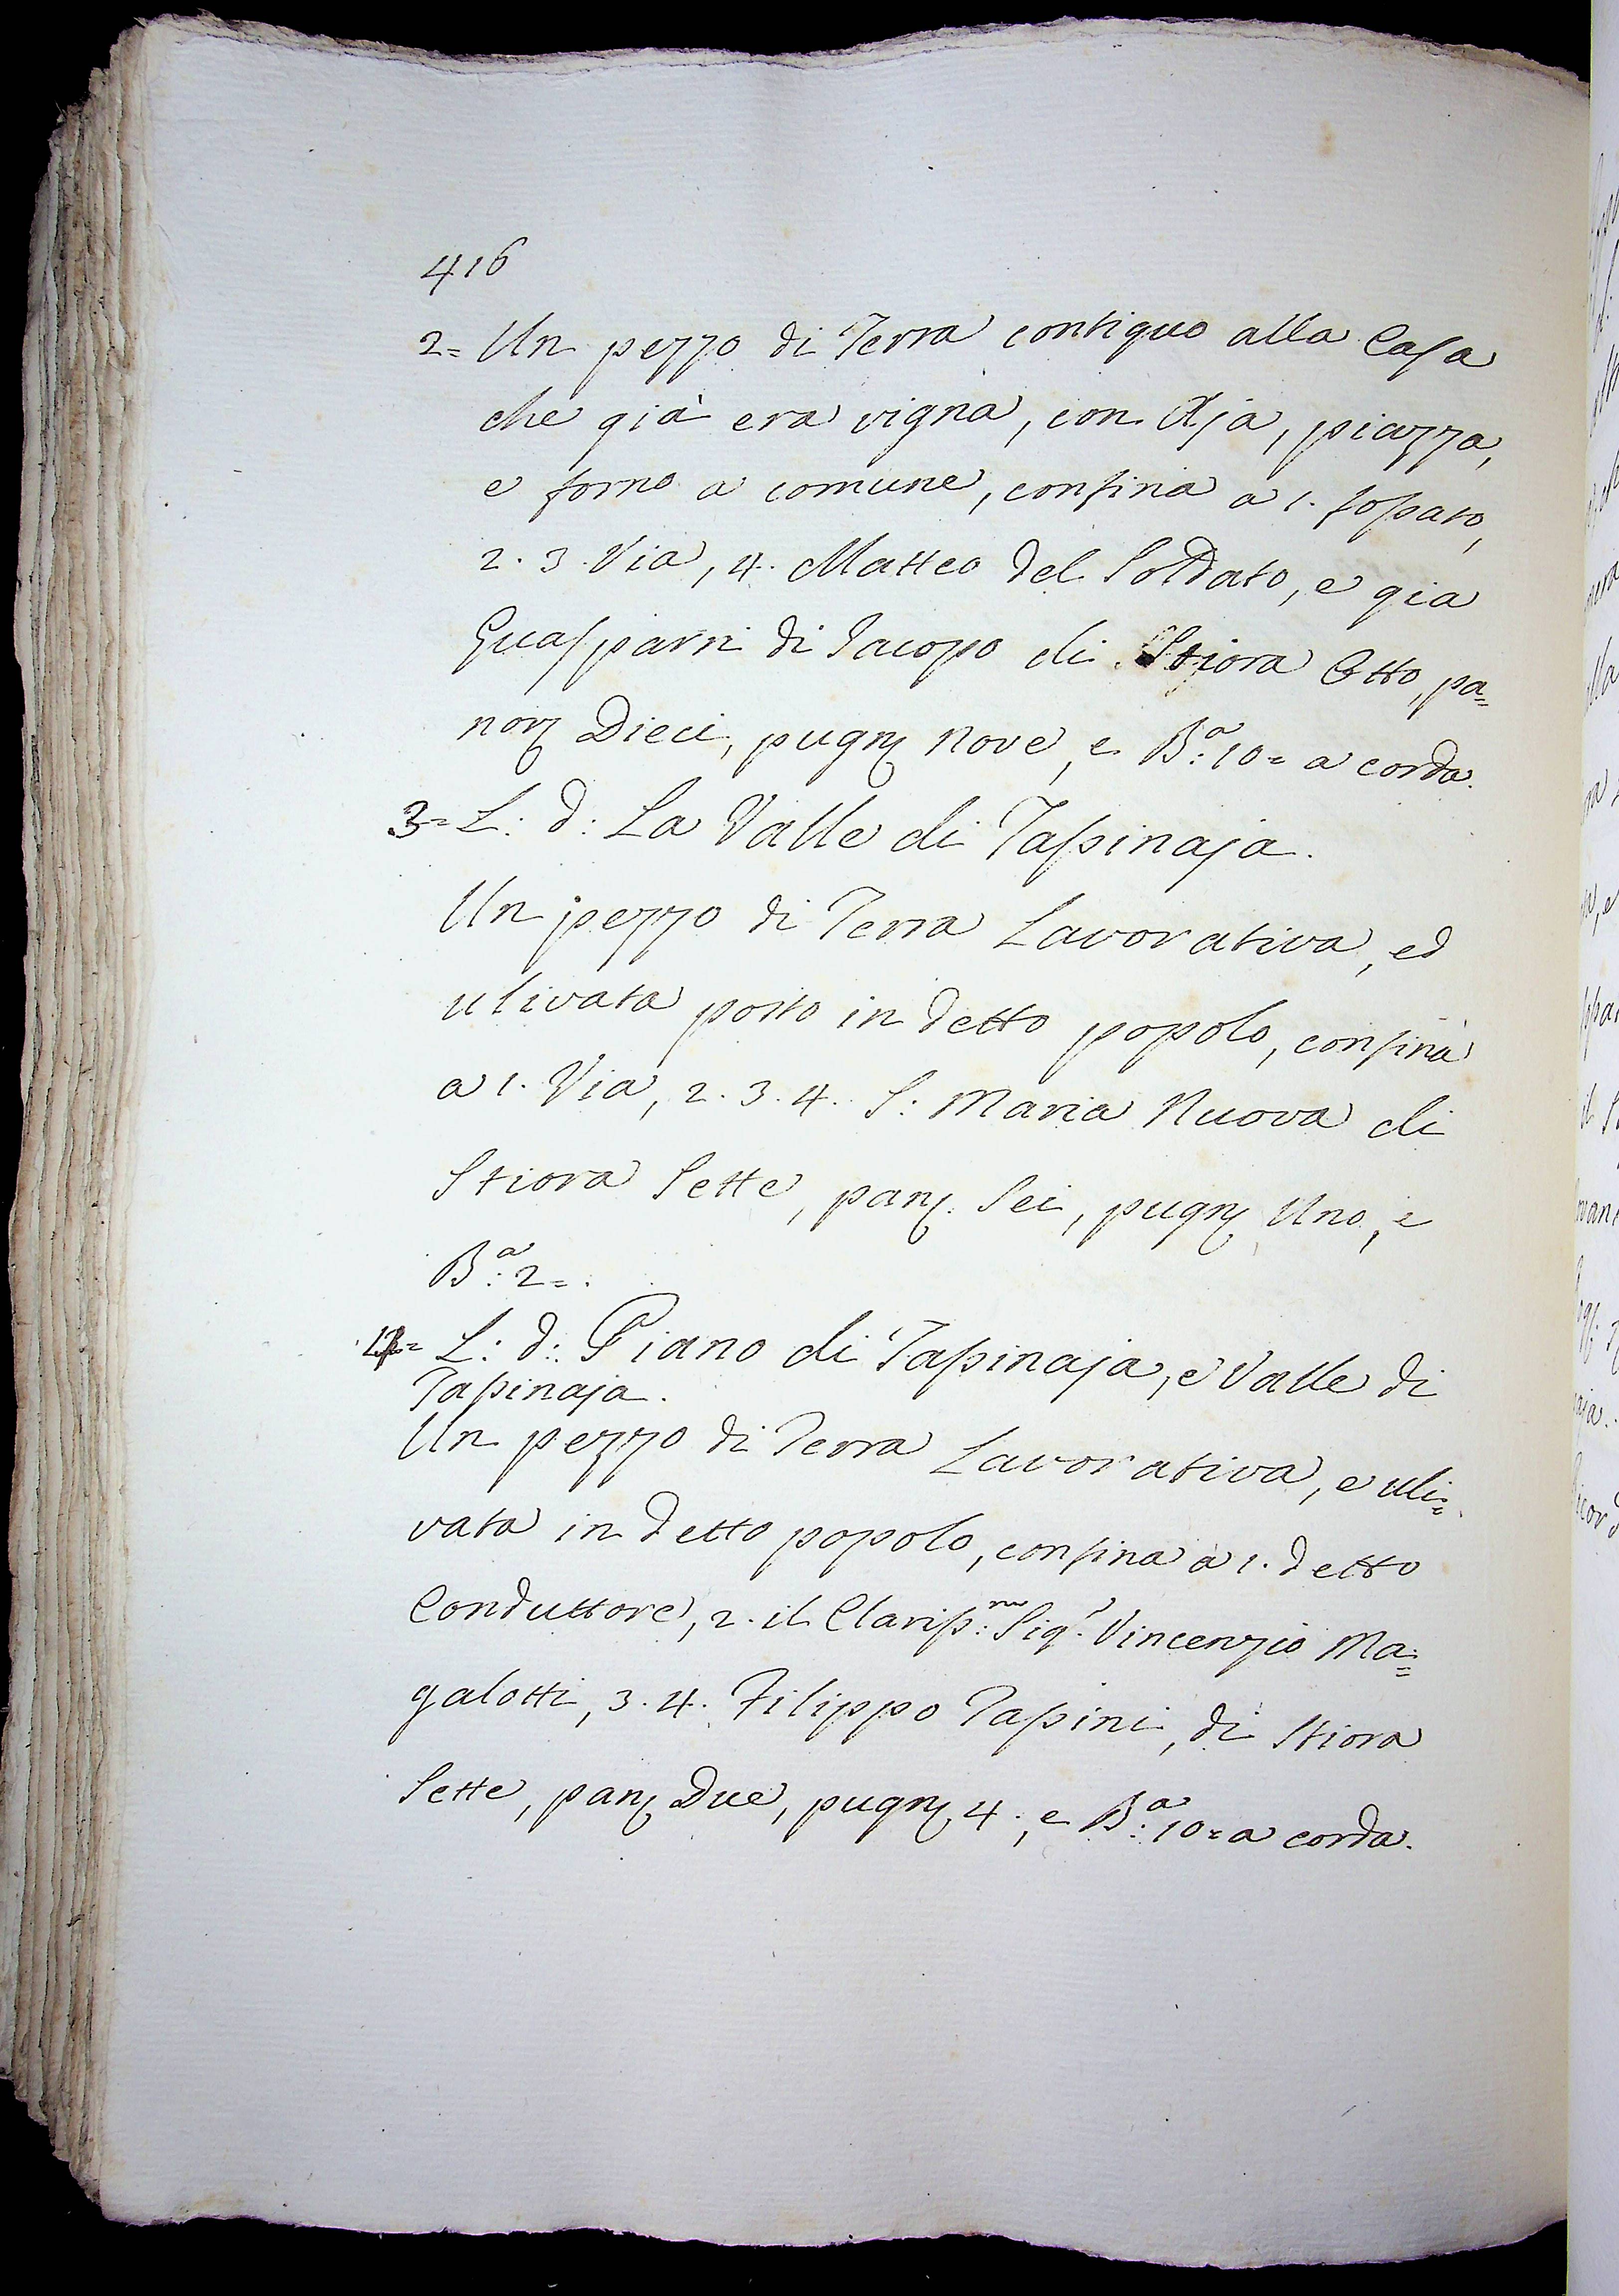 416
2= Un pezzo di Terra contiguo alla Casa
che già era vigna, con Aja, piazza,
e forno a comune, confina a 1. fossato,
2. 3. Via, 4. Matteo del Soldato, e gia
Guasparri di Iacopo di Stiora Otto, pa=
nor Dieci, pugn Nove, e B:a 10= a corda.
3= L: d: La Valle di Tassinaja.
Un pezzo di Terra Lavorativa, ed
ulivata posto in detto popolo, confina
a 1. Via, 2. 3. 4. S: Maria Nuova di
Stiora Sette, pan. Sei, pugn Uno, e
B:a 2=.
L: d: Piano di Tassinaja, e Valle di
Tassinaja.
Un pezzo di Terra Lavorativa, e uli=
vata in detto popolo, confina a 1. detto
Conduttore, 2. il Clariss:mo Sig.r Vincenzio Ma=
galotti, 3. 4. Filippo Tassini, di Stiora
Sette, pan Due, pugn 4., e B:a 10= a corda.